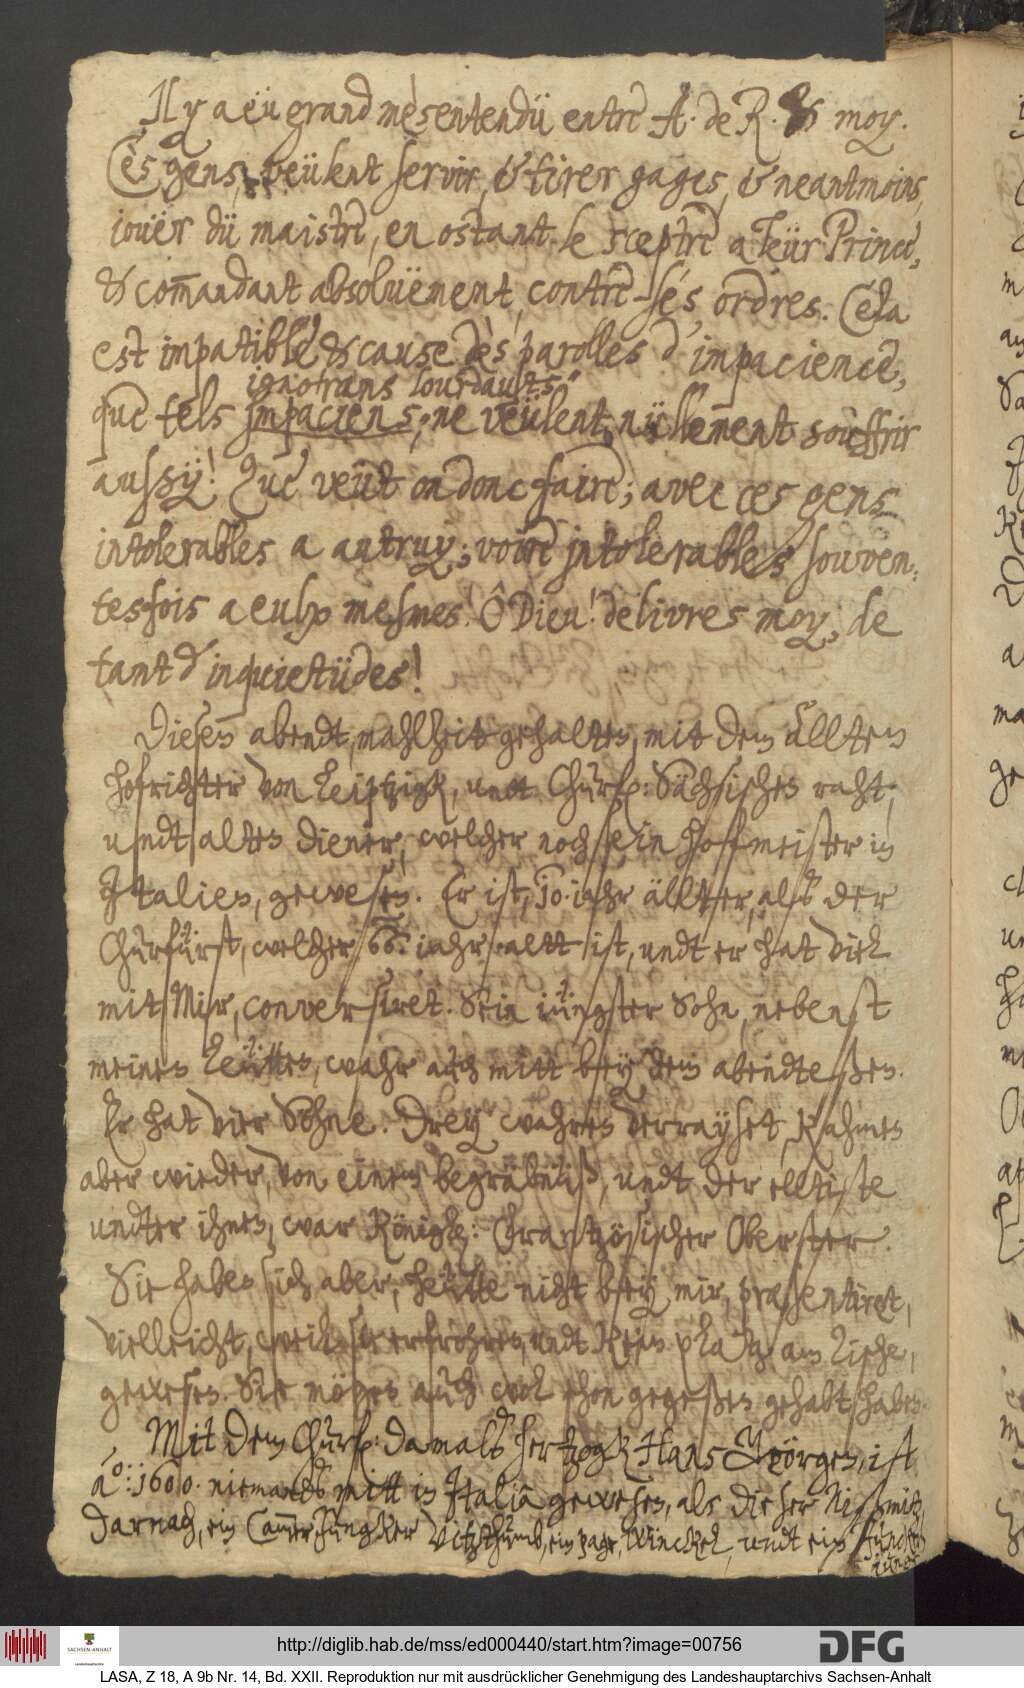 Il y a ëu grand mèsentendü entre A. de R. & moy.
Cès gens, veülent servir, & tirer gages, & neantmoins,
iouër dü maistre, en ostant le sceptre a leür Prince,
& com̅andant absolüëment, contre sés ordres. Cela
est impatible, & cause dès parolles d'impacience,
ignorans lourdaults
que tels impaciens, ne veülent, nüllement souffrir
aussÿ! Que veüt on donc faire; avec ces gens
intolerables a autruy; voire intolerables souven-
tesfois a eulx mesmes! Ô Dieu! delivres moy, de
tant d'inquietüdes!
Diesen abendt, mahlzeit gehalten, mit dem ällten
hofrichter von Leiptzigk, undt Churf: Sächsischen raht,
undt alten diener, welcher noch sein hoffmeister in
Italien, gewesen. Er ist, 10. iahr älllter, alß der
Churfürst, welcher 66. iahr altt ist, undt er hat viel
mit Mir, conversiret. Sein iüngster Sohn, nebenst
meinen Leütten, wahr auch mitt bey dem abendteßen.
Er hat vier Söhne. Drey wahren verrayset, kahmen
aber wieder, von einem begräbnüß, undt der elltiste
undter ihnen, war Königl: Frantzösischer Oberster.
Sie haben sich aber, heütte nicht bey mir, præsentiret,
vielleicht, weil sie erfrohren, undt kein platz am Tische,
gewesen. Sie mögen auch wol schon gegeßen gehabt haben.
Mit dem Churf: damalß hertzogk Hans Geörgen, ist
a͞o: 1600. niemandß mitt in Italia gewesen, als dieser
darnach, ein Cam̅erJungker Vitzthumb, ein page, Winckel, undt ein
http://diglib.hab.de/mss/ed000440/start.htm?image=00756
DFG
SACHSEN-ANHALT
LASA, Z 18, A 9b Nr. 14, Bd. XXII. Reproduktion nur mit ausdrücklicher Genehmigung des Landeshauptarchivs Sachsen-Anhalt